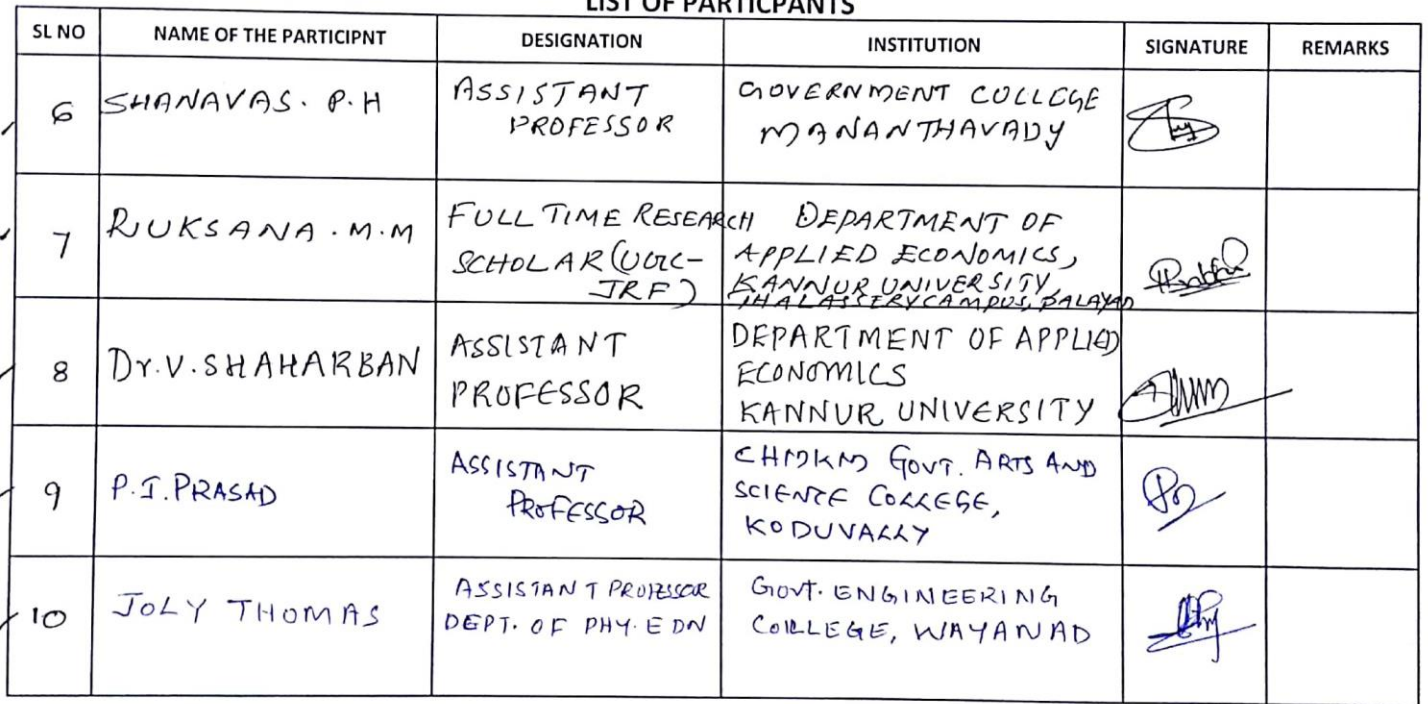 LIST OF PARTICPANTS
SL NO NAME OF THE PARTICIPNT DESIGNATION INSTITUTION SIGNATURE REMARKS
6 SHANAVAS. P.H ASSISTANT PROFESSOR GOVERNMENT COLLEGE MANANTHAVADY
7 RUKSANA.M.M FULL TIME RESEARCH SCHOLAR (UGC-JRF) DEPARTMENT OF APPLIED ECONOMICS, KANNUR UNIVERSITY, THALASSERY CAMPUS, PALAYAD
8 Dr.V.SHAHARBAN ASSISTANT PROFESSOR DEPARTMENT OF APPLIED ECONOMICS KANNUR UNIVERSITY
9 P.I.PRASAD ASSISTANT PROFESSOR CHMKM GOVT. ARTS AND SCIENCE COLLEGE, KODUVALLY
10 JOLY THOMAS ASSISTANT PROFESSOR DEPT. OF PHY. EDN GOVT. ENGINEERING COLLEGE, WAYANAD